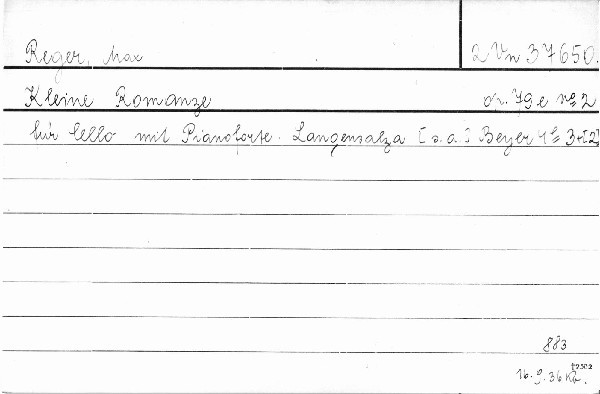 Reger, Max 2 Vn 37650.
Kleine Romanze op. 79 e № 2
für Cello mit Pianoforte. Langensalza [s.a.] Beyer
883
16.9.36